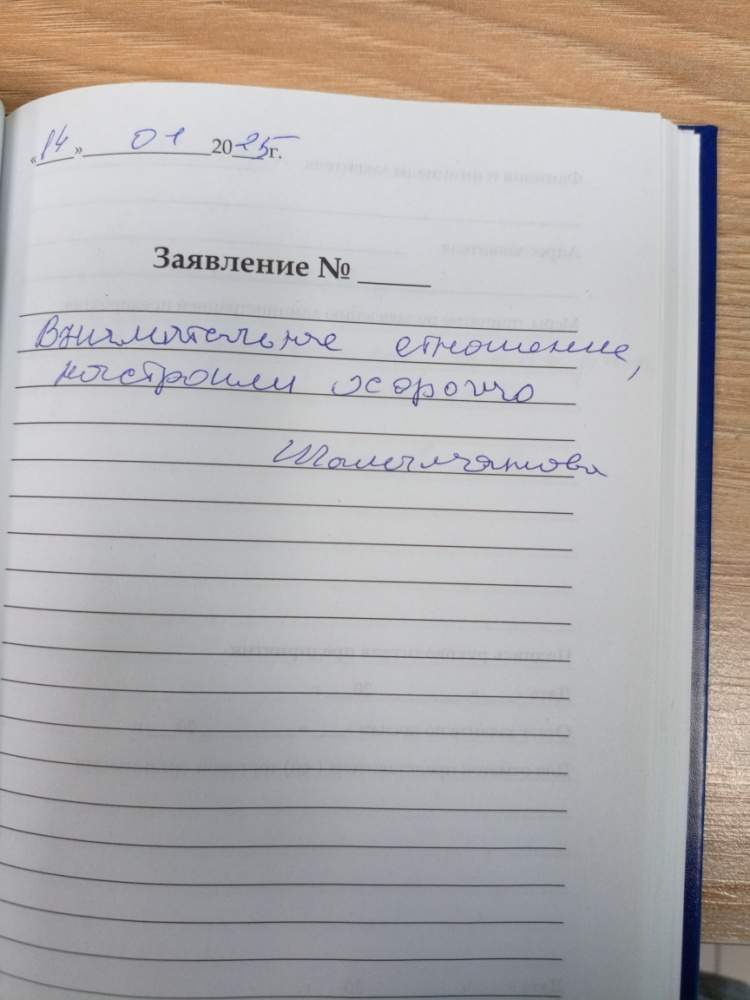 «14» 01 2025 г.
Заявление №
Внимательное отношение,
настроили хорошо